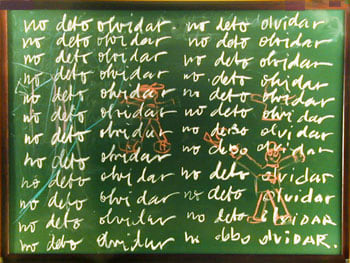 no debo olvidar no debo olvidar
no debo olvidar no debo olvidar
no debo olvidar no debo olvidar
no debo olvidar no debo olvidar
no debo olvidar no debo olvidar
no debo olvidar no debo olvidar
no debo olvidar no debo olvidar
no debo olvidar no debo olvidar
no debo olvidar no debo olvidar
no debo olvidar no debo olvidar
no debo olvidar no debo olbiDAR
no debo olvidar no debo OLVIDAR.